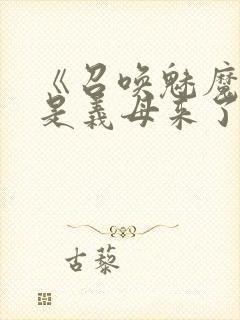 《召唤魅魔
是义母来了
古藜